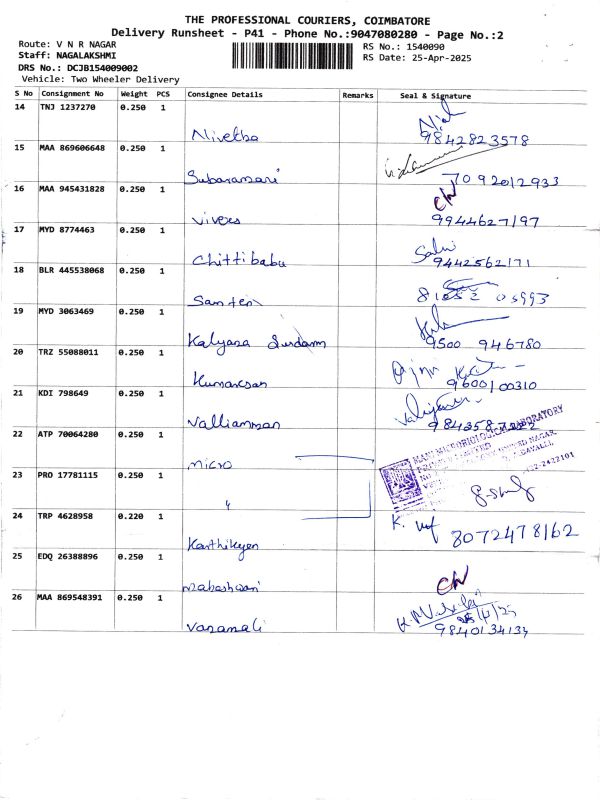 THE PROFESSIONAL COURIERS, COIMBATORE
Delivery Runsheet - P41 - Phone No.:9047080280 - Page No.:2
Route: V N R NAGAR
RS No.: 1540090
Staff: NAGALAKSHMI
RS Date: 25-Apr-2025
DRS No.: DCJB154009002
Vehicle: Two Wheeler Delivery
S No Consignment No Weight PCS Consignee Details Remarks Seal & Signature
14 TNJ 1237270 0.250 1
Nivetha 9842823578
15 MAA 869606648 0.250 1
7092012933
16 MAA 945431828 0.250 1
Vivers 9944627197
17 MYD 8774463 0.250 1
Chittibabu 9442562171
18 BLR 445538068 0.250 1
19 MYD 3063469 0.250 1
Kalyana 9500 946780
20 TRZ 55088011 0.250 1
Kumaresan 9600100310
21 KDI 798649 0.250 1
Valliamman
22 ATP 70064280 0.250 1
micro
23 PRO 17781115 0.250 1
"
24 TRP 4628958 0.220 1
Karthikeyen 8072478162
25 EDQ 26388896 0.250 1
26 MAA 869548391 0.250 1
Vasamali 9840134134